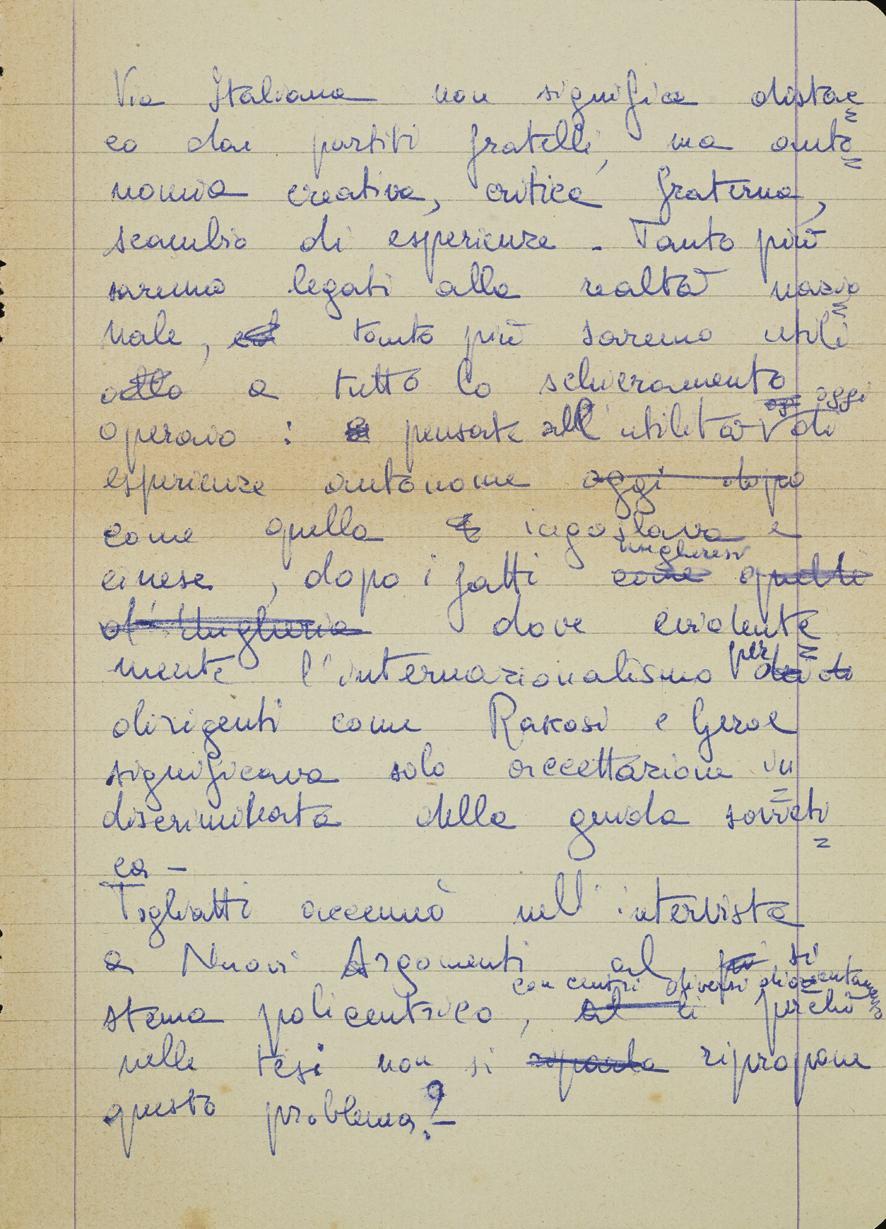 Via Italiana non significa distac
co dai partiti fratelli, ma auto
nomia creativa, critica fraterna,
scambio di esperienze - Tanto più
saremo legati alla realtà nazio
nale, tanto più saremo utili
a tutto lo schieramento
oggi
operaio : pensate all'utilità di
esperienze autonome oggi dopo
come quella iugoslava e
ungheresi
cinese, dopo i fatti come quelli
d'Ungheria dove evidente
per
mente l'internazionalismo
dirigenti come Rakosi e Geroe
significava solo accettazione in
discriminata della guida sovieti
ca -
Togliatti accennò nell'intervista
a Nuovi Argomenti al si
con centri diversi di orientamento
stema policentrico, perché
nelle tesi non si ripropone
questo problema? -